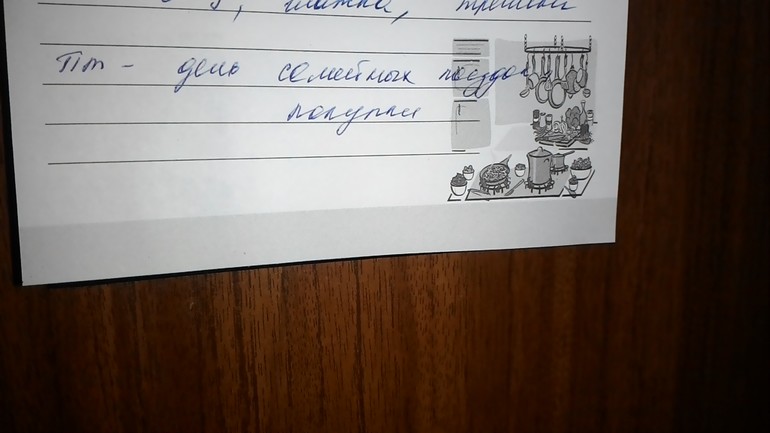 глажка,
Пт - день семейных поездок,
покупки